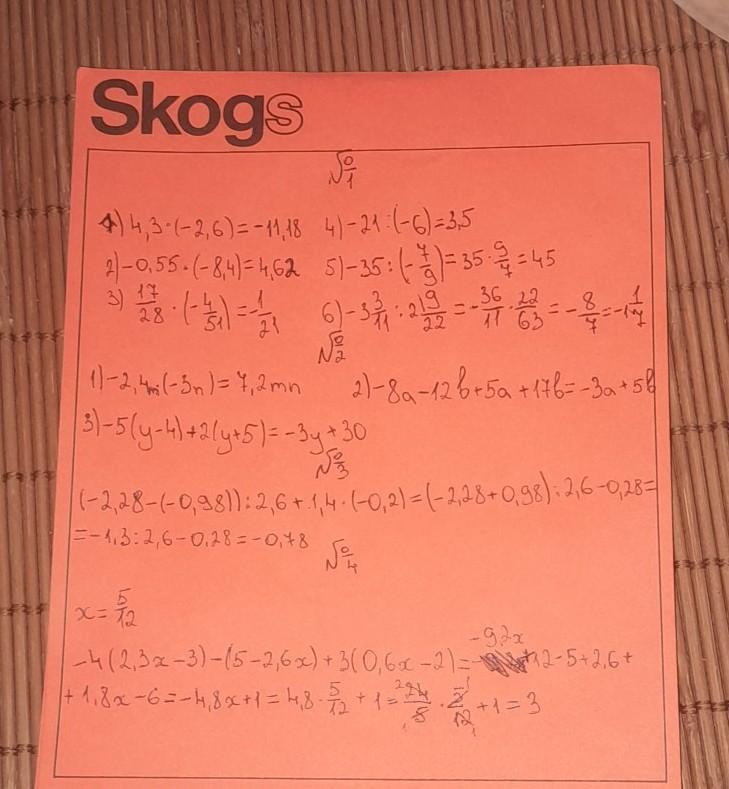 Skogs
№1
1) 4,3·(-2,6)=-11,18 4) -21:(-6)=3,5
2) -0,55·(-8,4)=4,62 5) -35:(-7/9)=35·9/7=45
3) 17/28·(-4/51)=-1/21 6) -3 3/11:2 19/22=-36/11·22/63=-8/7=-1 1/7
№2
1) -2,4m(-3n)=7,2mn 2) -8a-12b+5a+17b=-3a+5b
3) -5(y-4)+2(y+5)=-3y+30
№3
(-2,28-(-0,98)):2,6+1,4·(-0,2)=(-2,28+0,98):2,6-0,28=
=-1,3:2,6-0,28=-0,78
№4
x=5/12
-4(2,3x-3)-(5-2,6x)+3(0,6x-2)=-9,2x+12-5+2,6+
+1,8x-6=-4,8x+1=4,8·5/12+1= +1=3